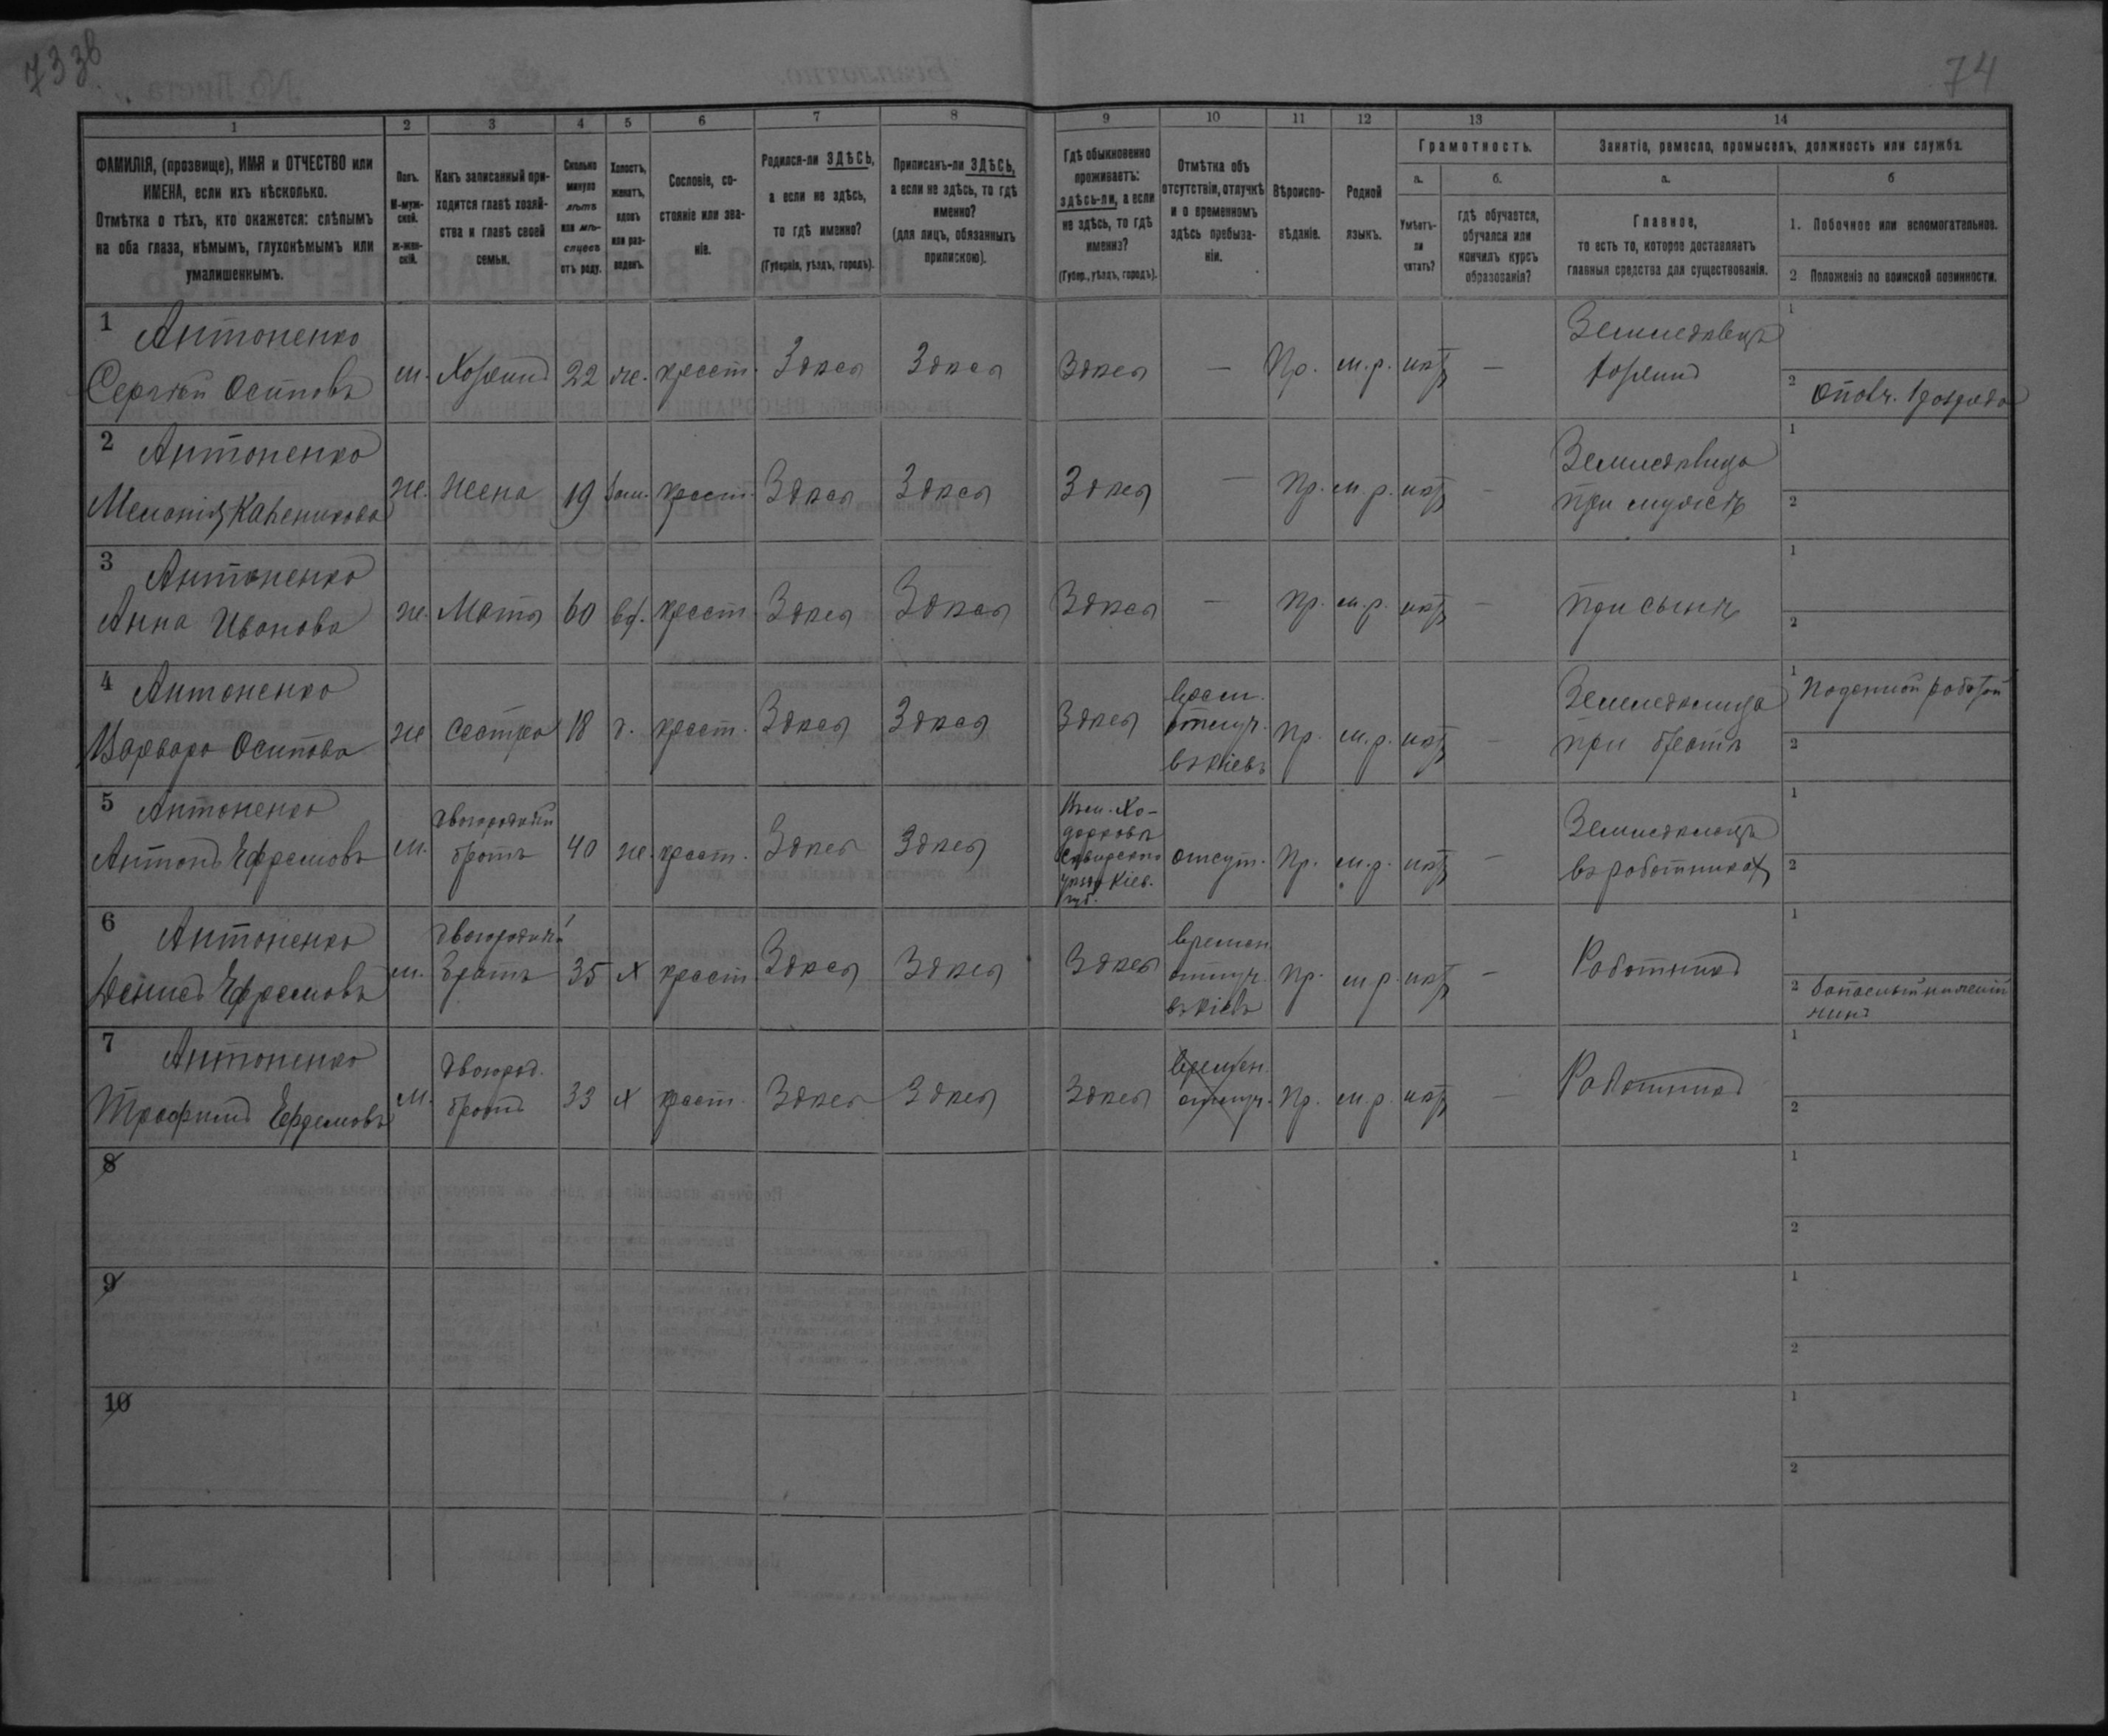 733в
74
1
2
3
4
5
6
7
8
9
10
11
12
13
14
ФАМИЛІЯ, (прозвище), ИМЯ и ОТЧЕСТВО или
ИМЕНА, если ихъ нѣсколько.
Отмѣтка о тѣхъ, кто окажется: слѣпымъ
на оба глаза, нѣмымъ, глухонѣмымъ или
умалишеннымъ.
Полъ.
М-муж-
ской.
ж-жен-
скій.
Какъ записанный при-
ходится главѣ хозяй-
ства и главѣ своей
семьи.
Сколько
минуло
лѣтъ
или мѣ-
сяцевъ
отъ роду.
Холостъ,
женатъ,
вдовъ
или раз-
веденъ.
Сословіе, со-
стояніе или зва-
ніе.
Родился-ли ЗДѢСЬ,
а если не здѣсь,
то гдѣ именно?
(Губернія, уѣздъ, городъ).
Приписанъ-ли ЗДѢСЬ,
а если не здѣсь, то гдѣ
именно?
(для лицъ, обязанныхъ
припискою).
Гдѣ обыкновенно
проживаетъ:
здѣсь-ли, а если
не здѣсь, то гдѣ
именно?
(Губер., уѣздъ, городъ).
Отмѣтка объ
отсутствіи, отлучкѣ
и о временномъ
здѣсь пребыва-
ніи.
Вѣроиспо-
вѣданіе.
Родной
языкъ.
Грамотность.
а.
б.
Умѣетъ-
ли
читать?
гдѣ обучается,
обучался или
кончилъ курсъ
образованія?
Занятіе, ремесло, промыселъ, должность или служба.
а.
б
Главное,
то есть то, которое доставляетъ
главныя средства для существованія.
1. Побочное или вспомогательное.
2 Положеніе по воинской повинности.
1 Антоненко
Сергѣй Осиповъ
м. Хозяинъ 22 же. крест. Здѣсь Здѣсь Здѣсь — Пр. м.р. нѣтъ —
Земледѣлецъ
хозяинъ
1
2 Ополч. 1 разряда
2 Антоненко
Меланія
же. Жена 19 зам. крест. Здѣсь Здѣсь Здѣсь — Пр. м.р. нѣтъ —
при мужѣ
1
2
3 Антоненко
Анна Иванова
же. Мать 60 вд. крест. Здѣсь Здѣсь Здѣсь — Пр. м.р. нѣтъ —
при сынѣ
1
2
4 Антоненко
Варвара Осипова
же сестра 18 д. крест. Здѣсь Здѣсь Здѣсь
врем.
отлуч.
въ Кіевъ
Пр. м.р. нѣтъ —
Земледѣлица
при братѣ
1 Поденной работой
2
5 Антоненко
Антонъ Ефремовъ
м.
двоюродный
братъ
40 же. крест. Здѣсь Здѣсь
Хо-
дорковъ
Сквирскаго
уѣзда Кіев.
губ.
отсут. Пр. м.р. нѣтъ —
Земледѣлецъ
въ работникахъ
1
2
6 Антоненко
Денисъ Ефремовъ
м.
двоюродный
братъ
35 х крест. Здѣсь Здѣсь Здѣсь
времен.
отлуч.
въ Кіевъ
Пр. м.р. нѣтъ —
Работникъ
1
2 Запасный нижній
чинъ
7 Антоненко
Трофимъ Ефремовъ
м.
двоюрод.
братъ
33 х крест. Здѣсь Здѣсь Здѣсь
времен.
отлуч.
Пр. м.р. нѣтъ —
Работникъ
1
2
8
1
2
9
1
2
10
1
2